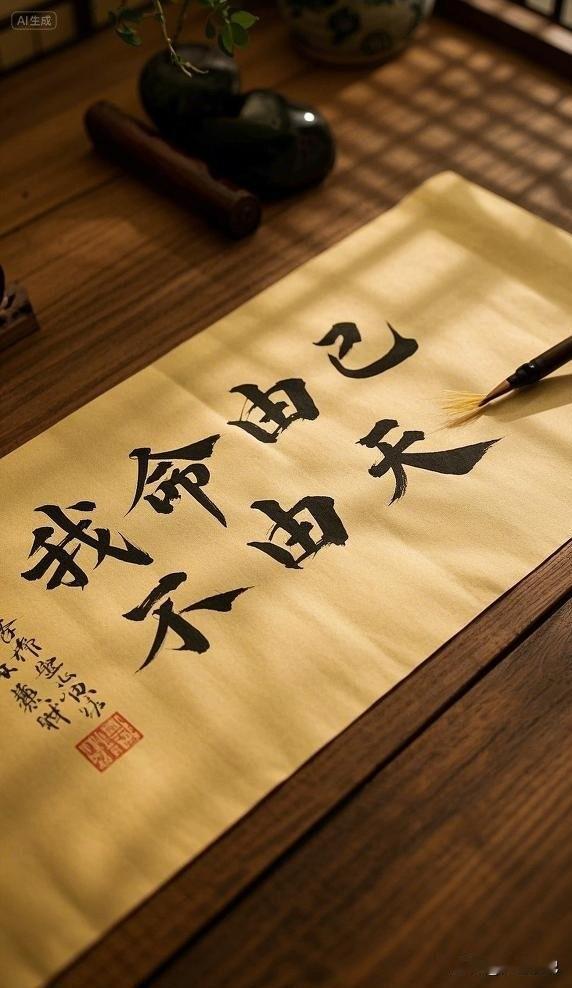 AI生成
我命由己
不由天